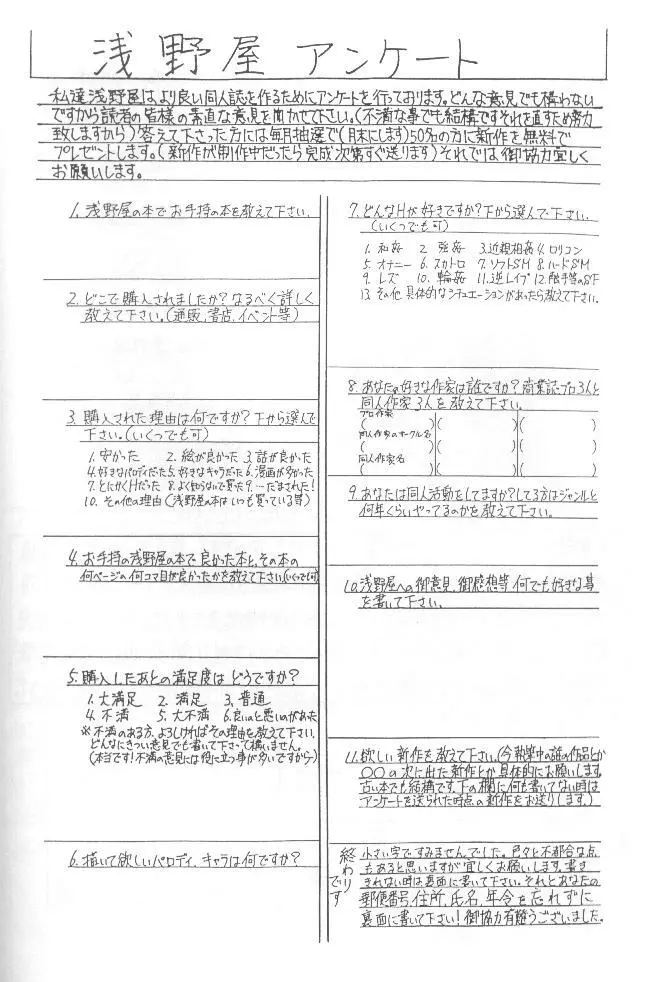 浅野屋 アンケート
私達浅野屋は、より良い同人誌を作るためにアンケートを行っております。どんな意見でも構わない
ですから読者の皆様の素直な意見を聞かせて下さい。(不満な事でも結構ですそれを直すため努力
致しますから)答えて下さった方には毎月抽選で(月末にします)50名の方に新作を無料で
プレゼントします。(新作が制作中だったら完成次第すぐ送ります)それでは、御協力宜しく
お願いします。
1. 浅野屋の本でお手持の本を教えて下さい。
2. どこで購入されましたか?なるべく詳しく
教えて下さい。(通販、書店、イベント等)
3. 購入された理由は何ですか?下から選んで
下さい。(いくつでも可)
1. 安かった 2. 絵が良かった 3. 話が良かった
4. 好きなパロディだった 5. 好きなキャラだった 6. 漫画が多かった
7. とにかくHだった 8. よく知らないで買った 9. …だまされた!
10. その他の理由(浅野屋の本はいつも買っている等)
4. お手持の浅野屋の本で良かった本と、その本の
何ページの何コマ目が良かったかを教えて下さい(いくつでも可)
5. 購入したあとの満足度はどうですか?
1. 大満足 2. 満足 3. 普通
4. 不満 5. 大不満 6. 良いのと悪いのがあった
※不満のある方、よろしければその理由を教えて下さい。
どんなにきつい意見でも書いて下さって構いません。
(本当です!不満の意見には役に立つ事が多いですから)
6. 描いて欲しいパロディ、キャラは何ですか?
7. どんなHが好きですか?下から選んで下さい。
(いくつでも可)
1. 和姦 2. 強姦 3. 近親相姦 4. ロリコン
5. オナニー 6. スカトロ 7. ソフトSM 8. ハードSM
9. レズ 10. 輪姦 11. 逆レイプ 12. 触手等のSF
13. その他 具体的なシチュエーションがあったら教えて下さい。
8. あなたの好きな作家は誰ですか?商業誌・プロ3人と
同人作家3人を教えて下さい。
プロ作家
( )( )( )
同人作家のサークル名
( )( )( )
同人作家名
( )( )( )
9. あなたは同人活動をしてますか?してる方はジャンルと
何年くらいやってるのかを教えて下さい。
10. 浅野屋への御意見、御感想等何でも好きな事
を書いて下さい。
11. 欲しい新作を教えて下さい。(今執筆中の話の作品とか
〇〇の次に出た新作とか具体的にお願いします。
古い本でも結構です。下の欄に何も書いてない時は
アンケートを送られた時点の新作をお送りします。)
終わりです
小さい字ですみませんでした。色々と不都合な点
もあると思いますが宜しくお願いします。書き
きれない時は裏面に書いて下さい。それとあなたの
郵便番号、住所、氏名、年令を忘れずに
裏面に書いて下さい!御協力有難うございました。